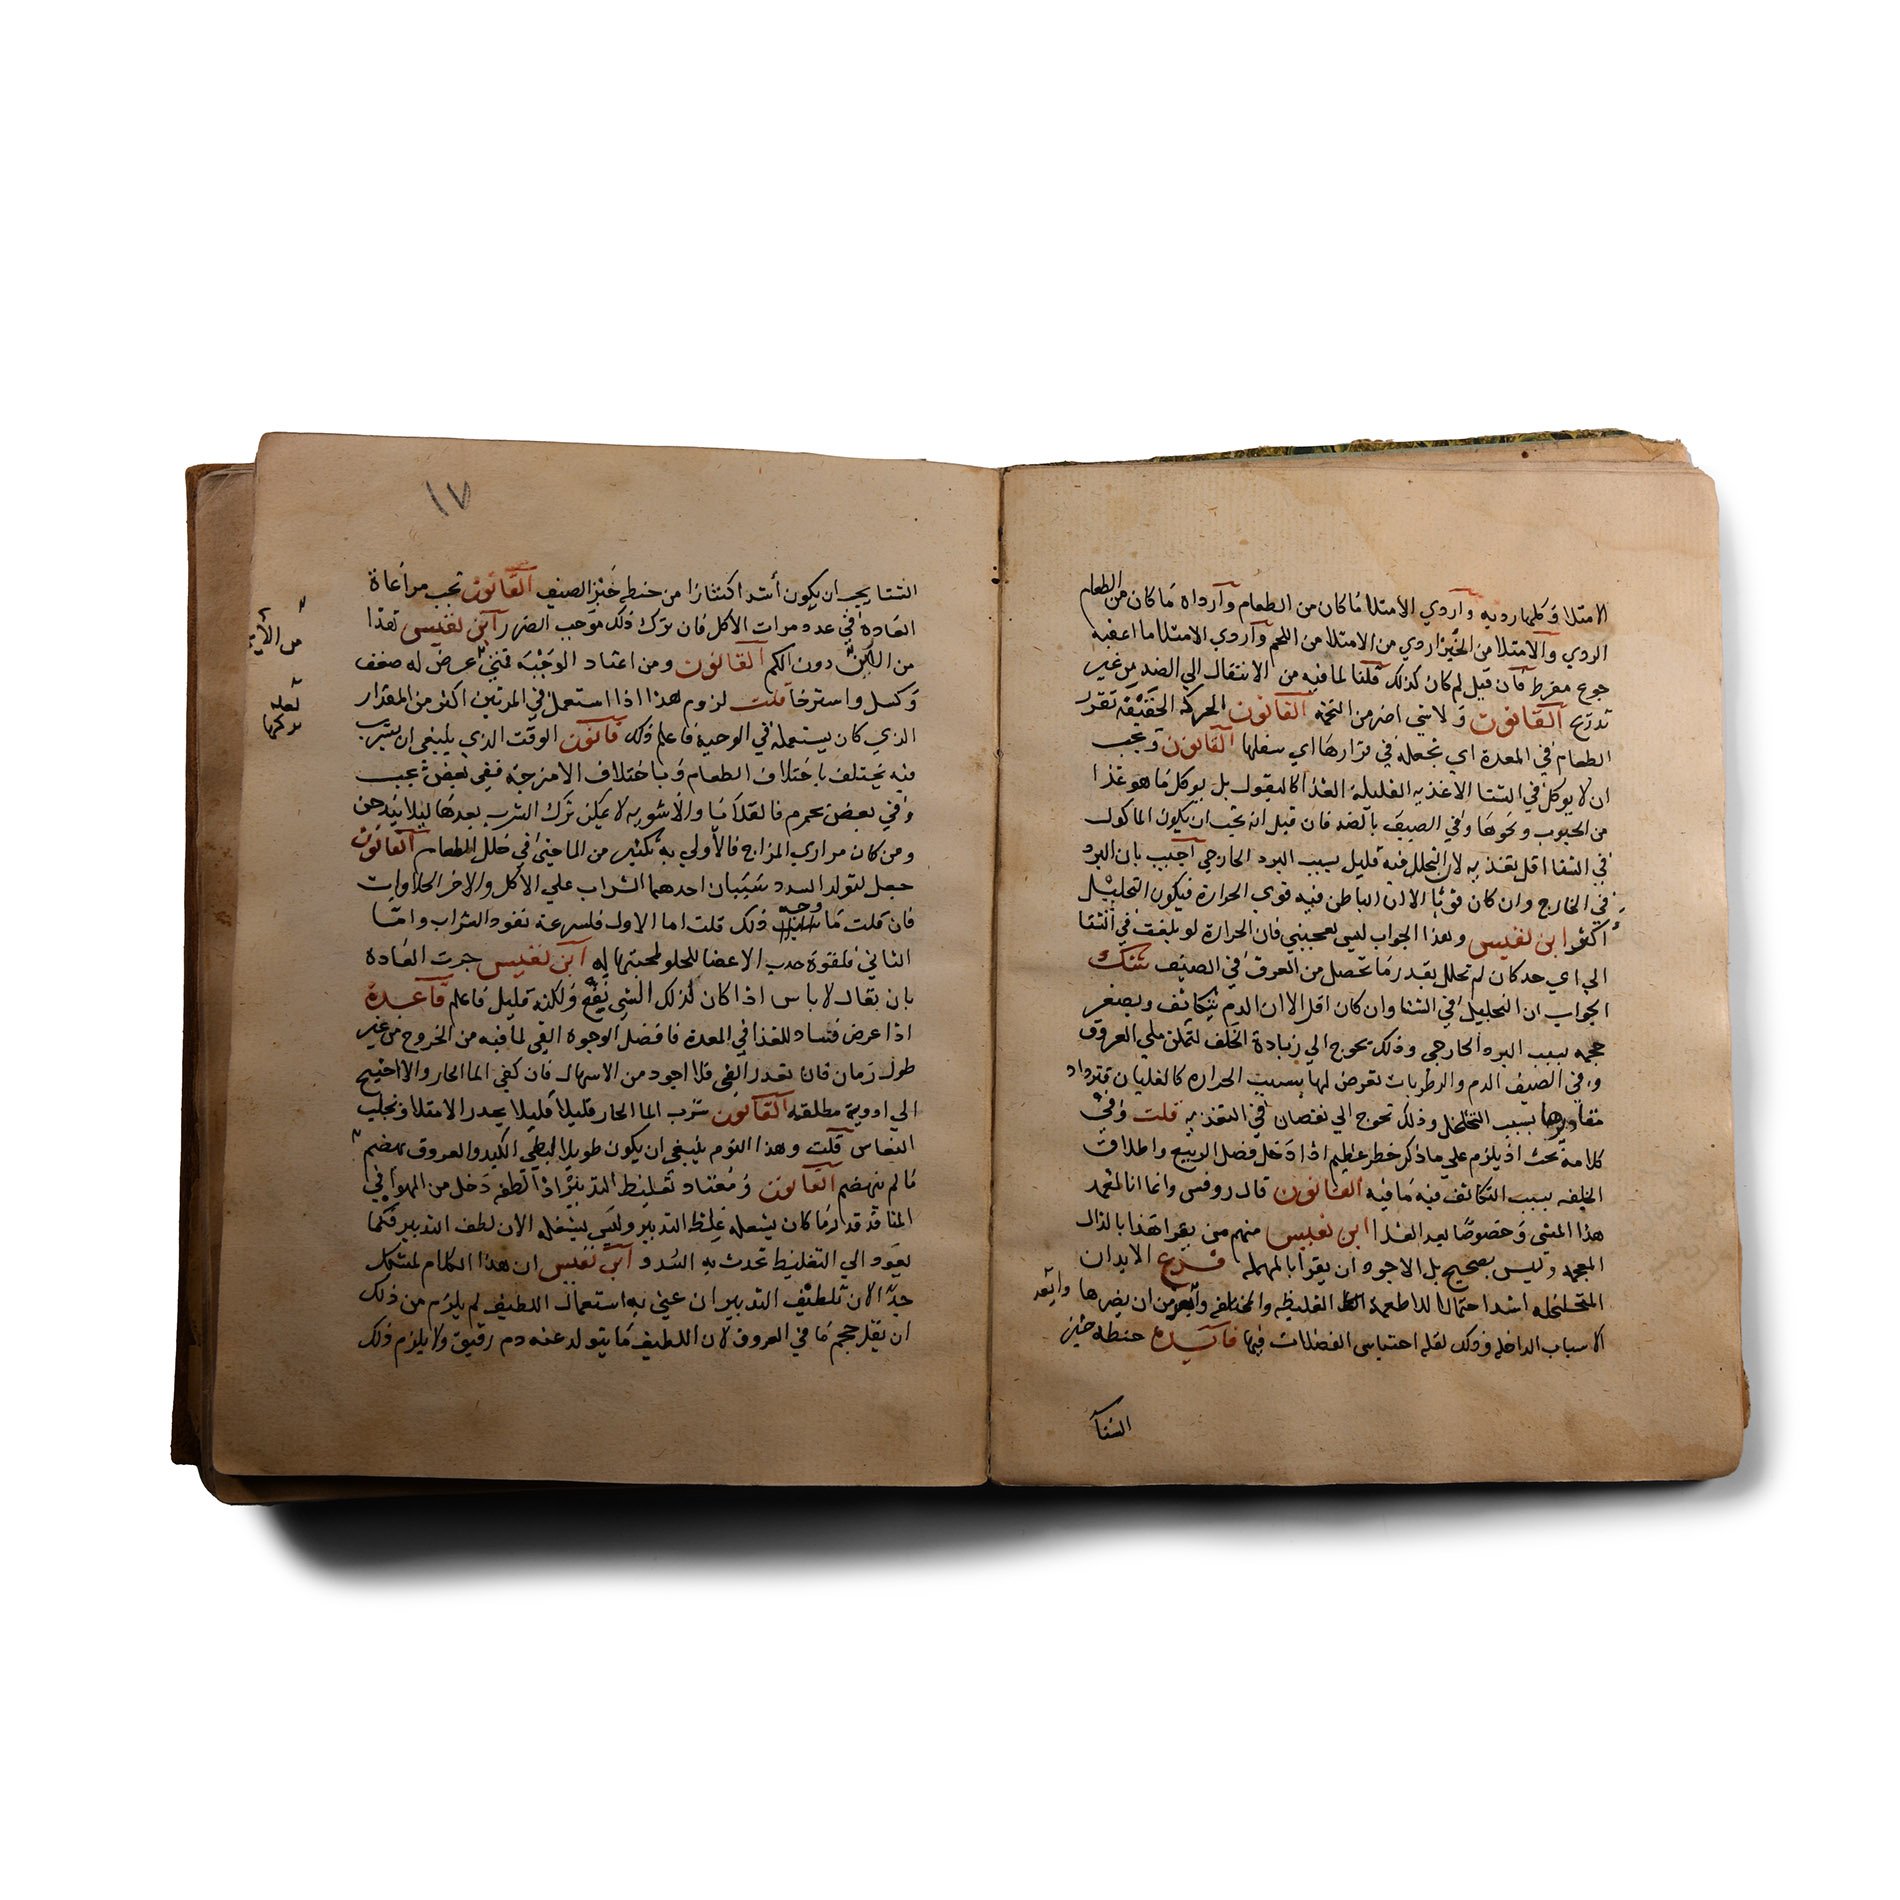 الامتلا وكلها رديه واردي الامتلا ما كان من الطعام وارداه ما كان من الطعام
الردي والامتلا من الخبز اردي من الامتلا من اللحم واردي الامتلا ما اعقبه
جوع مفرط فان قيل لم كان كذلك قلنا لما فيه من الانتقال الي الضد من غير
تدريج القانون ولا شي اضر من التخمه القانون الحركه الخفيفة تقرر
الطعام في المعدة اي تجعله في قرارها اي سفلها القانون ويجب
ان لا يوكل في الشتا الاغذيه القليلة الغذا كالبقول بل يوكل ما هو غذا
من الحبوب ونحوها وفي الصيف بالضد فان قيل انه يجب ان يكون الماكول
في الشتا اقل تغذيه لان التحلل فيه قليل بسبب البرد الخارجي اجيب بان البرد
في الخارج وان كان قويا الا ان الباطن فيه قوي الحرارة فيكون التحليل
اكثر ابن نفيس وهذا الجواب ليس يعجبني فان الحرارة لو بلغت في الشتا
الي اي حد كان لم تحلل بقدر ما تحصل من العرق في الصيف
الجواب ان التحليل في الشتا وان كان اقل الا ان الدم يتكاثف ويصغر
حجمه بسبب البرد الخارجي وذلك يحوج الي زيادة الخلف لتملن ملي العروق
وفي الصيف الدم والرطوبات تعرض لها بسبب الحراره كالغليان فتزداد
مقادرها بسبب التخلخل وذلك تحوج الي نقصان في التغذيه قلت وفي
كلامه بحث اذ يلزم علي ما ذكر خطر عظيم اذا دخل فصل الربيع واطلاق
الخلفه بسبب التكاثف فيه ما فيه القانون قال روفس وانما انا لمحمد
هذا المشي وخصوصا بعد الغذا ابن نفيس منهم من يقرا هذا بالذال
المعجمه وليس بصحيح بل الاجود ان يقرا بالمهمله فرع الابدان
المتخلخله اشد احتمالا للاطعمة الغليظه والمختلفه وابعد من ان يضرها وابعد
الاسباب الداخله وذلك لقله احتباس الفضلات فيها فايده حنطه خبز
الشتا
١٧
الشتا يجب ان يكون اشد اكتنازا من حنطه خبز الصيف القانون تجب مراعاة
العاده في عدد مرات الاكل فان ترك ذلك موجب الضرر ابن نفيس هذا
من دون الكم القانون ومن اعتاد الوجبه فثني عرض له ضعف
وكسل واسترخا قلت لزوم هذا اذا استعمل في المرتين اكثر من المقدار
الذي كان يستعمله في الوجبة فاعلم ذلك قانون الوقت الذي ينبغي ان يشرب
فيه يختلف باختلاف الطعام وباختلاف الامزجه ففي بعض يجب
وفي بعض يحرم فالقلاما والاشويه لا يمكن ترك الشرب بعدها ليلا يدخن
ومن كان مراري المزاج فالاولي به تكثير من الما حتى في خلل الطعام القانون
جعل لتولد السدد سببان احدهما الشراب علي الاكل والاخر الحلاوات
فان قلت ما وجه ذلك قلت اما الاول فلسرعة نفود الشراب واما
الثاني فلقوة جذب الاعضا للحلو لمحبتها له ابن نفيس جرت العادة
بان يقال لا باس اذا كان لذلك الشي نفع ولكنه قليل فاعلم قاعدة
اذا عرض فساد للغذا في المعدة فافضل الوجوه القي لما فيه من الخروج من غير
طول زمان فان تعذر القي فلا اجود من الاسهال فان كفي الما الحار والا احتيج
الي ادوية مطلقه القانون شرب الما الحار قليلا قليلا يحدر الامتلا ويجلب
النعاس قلت وهذا النوم ينبغي ان يكون طويلا لبطي الكبد والعروق بهضم
ما لم ينهضم القانون ومعتاد تغليظ التدبير اذا لطفه دخل من الهوا في
المنافذ قدر ما كان يشغله غلظ التدبير وليس يشغله الان لطف التدبير فكما
يعود الي التغليظ تحدث به السدد ابن نفيس ان هذا الكلام لمشكل
جدا لان تلطيف التدبير ان عني به استعمال اللطيف لم يلزم من ذلك
ان يقل حجم ما في العروق لان اللطيف ما يتولد عنه دم رقيق ولا يلزم ذلك